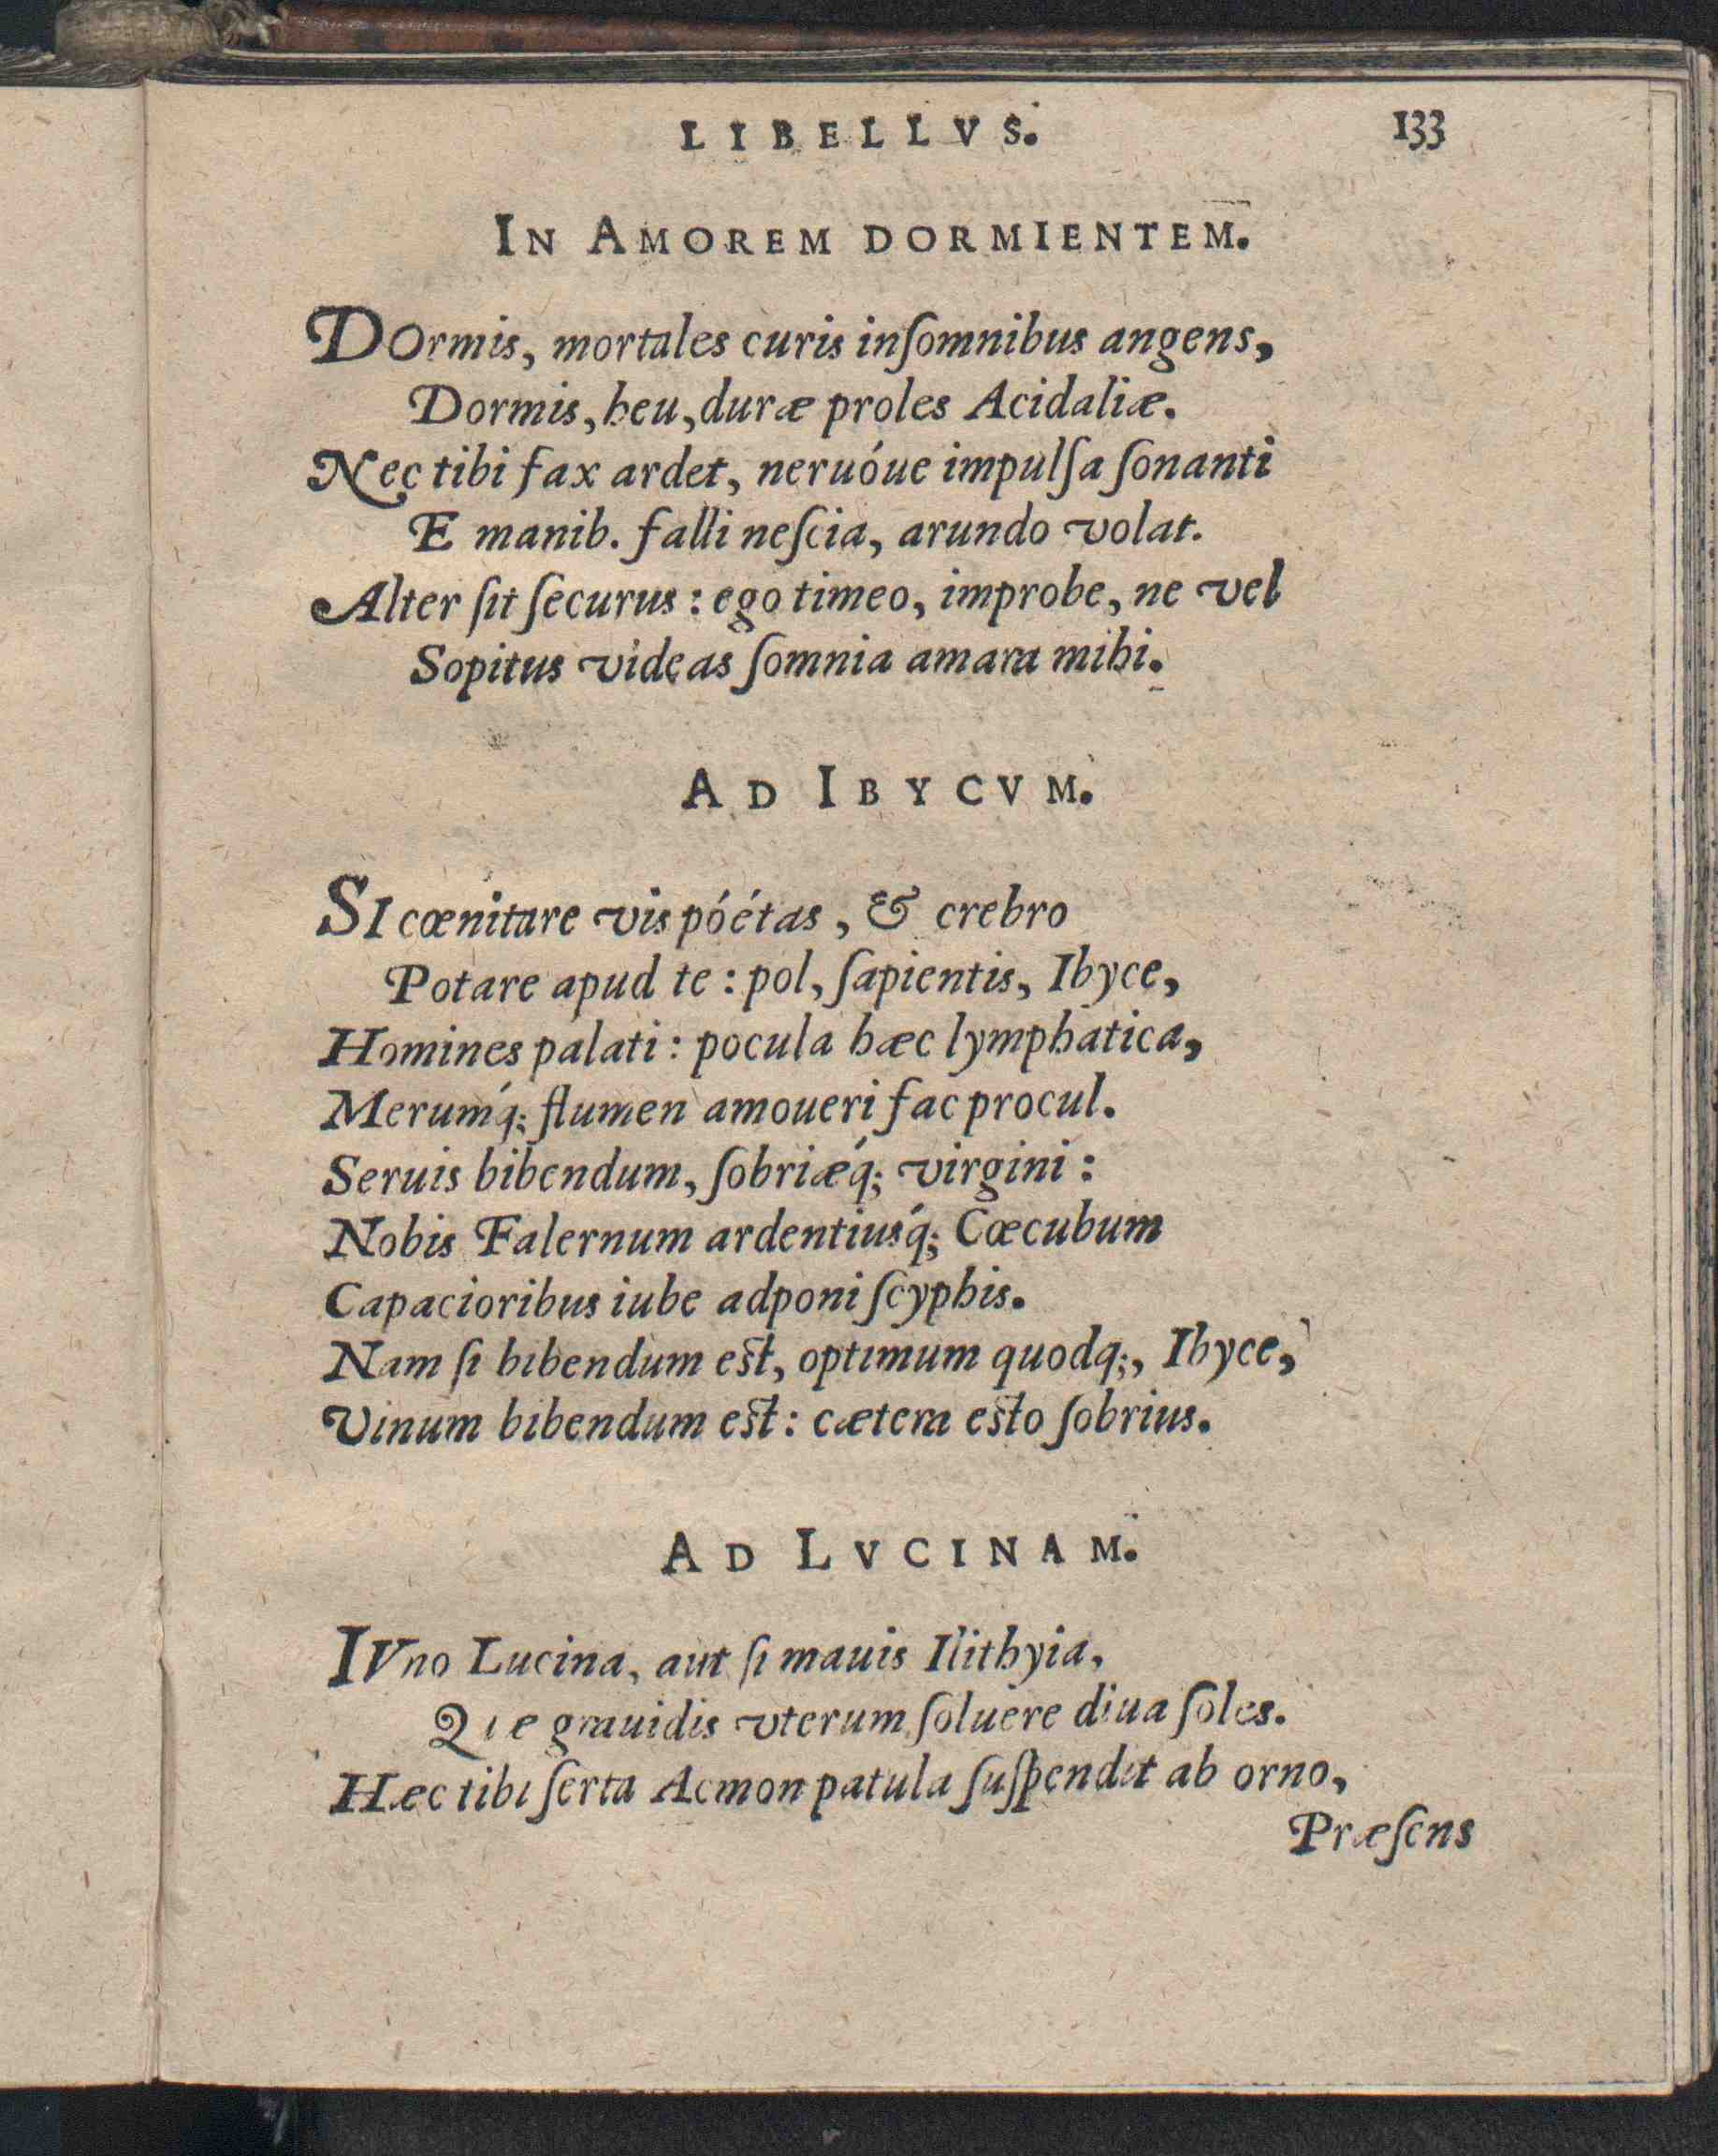 LIBELLVS. 133
IN AMOREM DORMIENTEM.
DOrmis, mortales curis inſomnibus angens,
Dormis, heu, duræ proles Acidaliæ.
Nec tibi fax ardet, neruóue impulſa ſonanti
E manib. falli neſcia, arundo volat.
Alter ſit ſecurus: ego timeo, improbe, ne vel
Sopitus videas ſomnia amara mihi.
AD IBYCVM.
SI cœnitare vis póétas, & crebro
Potare apud te: pol, ſapientis, Ibyce,
Homines palati: pocula hæc lymphatica,
Merumq́; flumen amoueri fac procul.
Seruis bibendum, ſobriæq́; virgini:
Nobis Falernum ardentiusq́; Cœcubum
Capacioribus iube adponi ſcyphis.
Nam ſi bibendum est, optimum quodq;, Ibyce,
Vinum bibendum est: cætera esto ſobrius.
AD LVCINAM.
IVno Lucina, aut ſi mauis Ilithyia,
Quæ grauidis vterum ſoluere diua ſoles.
Hæc tibi ſerta Acmon patula ſuſpendit ab orno,
Præſens